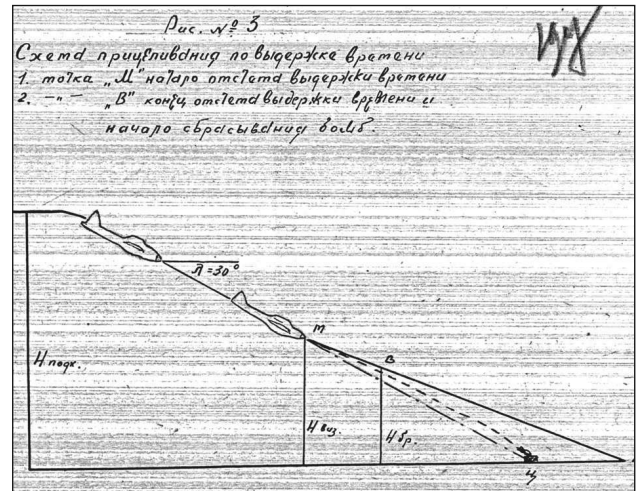 Рис. № 3
Схема прицеливания по выдержке времени
1. точка „М" начало отсчета выдержки времени
2. –„– „В" конец отсчета выдержки времени и
начало сбрасывания бомб.
Л=30°
М
В
Н подх.
Н виз.
Н бр.
Ц